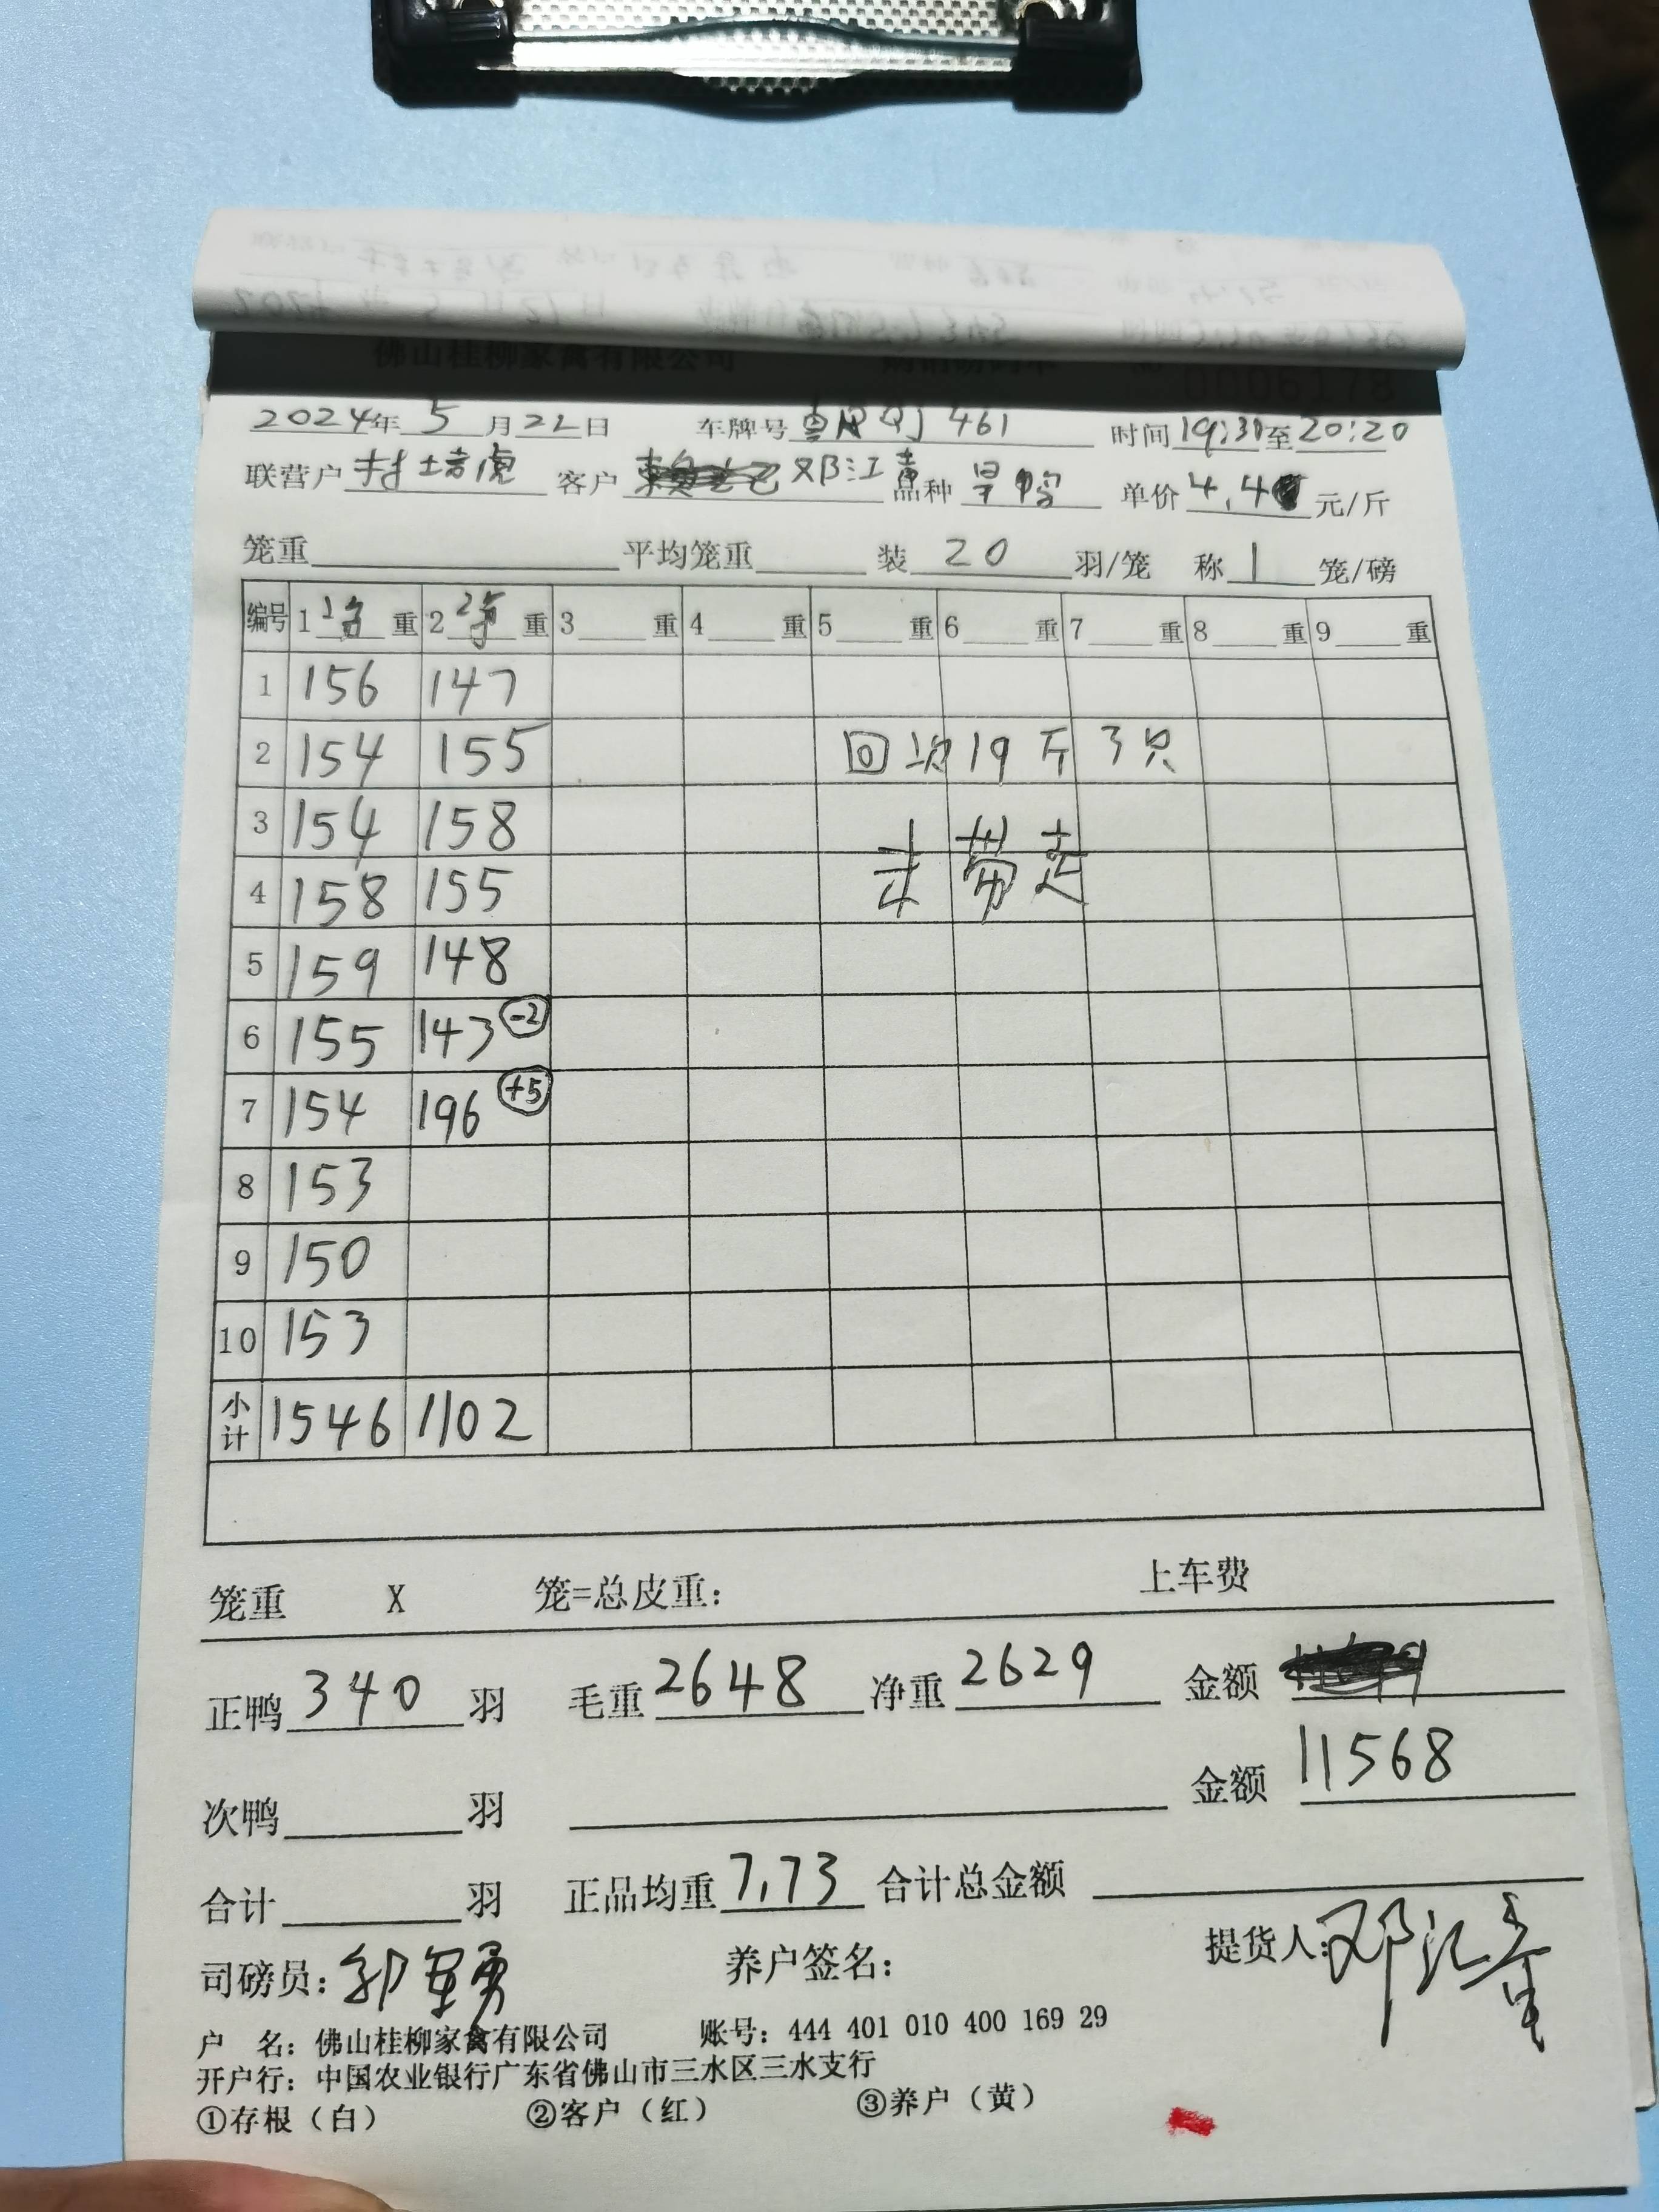 佛山桂柳家禽有限公司 0006178
2024年5月22日 车牌号 461 时间19:30至20:20
联营户 培虎 客户 邓江青 品种 旱鸭 单价4.4元/斤
笼重 平均笼重 装 20 羽/笼 称 1 笼/磅
编号 1 重 2 重 3 重 4 重 5 重 6 重 7 重 8 重 9 重
1 156 147
2 154 155 回次19斤3只
3 154 158
4 158 155 未带走
5 159 148
6 155 143 -2
7 154 196 +5
8 153
9 150
10 153
小计 1546 1102
笼重 X 笼=总皮重: 上车费
正鸭 340 羽 毛重 2648 净重 2629 金额
次鸭 羽 金额 11568
合计 羽 正品均重 7.73 合计总金额
司磅员: 养户签名: 提货人: 邓江青
户 名: 佛山桂柳家禽有限公司 账号: 444 401 010 400 169 29
开户行: 中国农业银行广东省佛山市三水区三水支行
①存根(白) ②客户(红) ③养户(黄)